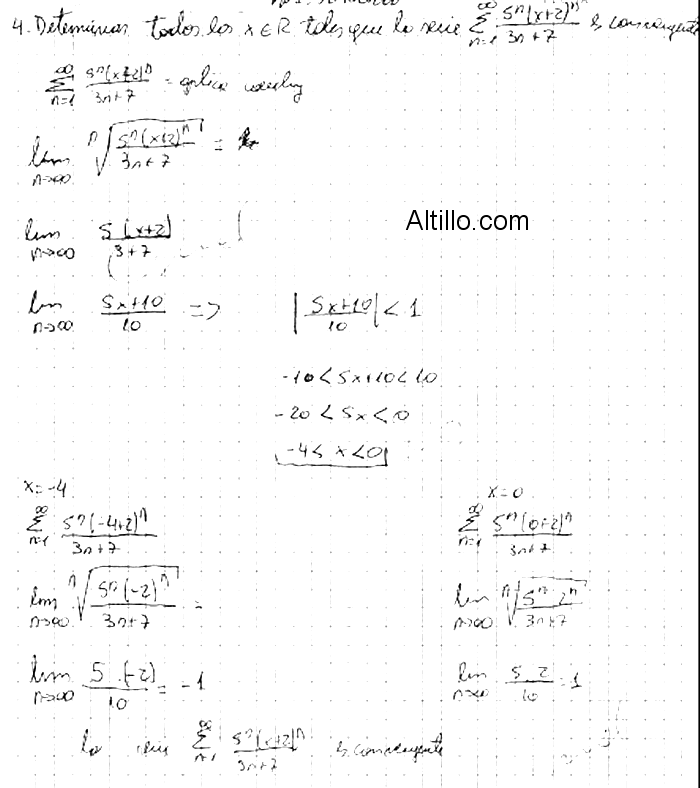 4. Determinar todos los x ∈ R tales que la serie ∑_{n=1}^{∞} 5^n(x+2)^n / 3n+7 es convergente
∑_{n=1}^{∞} 5^n(x+2)^n / 3n+7 = aplico cauchy
lim_{n→∞} ⁿ√(5^n(x+2)^n / 3n+7) =
Altillo.com
lim_{n→∞} 5(x+2) / 3+7
lim_{n→∞} 5x+10 / 10 => |5x+10 / 10| < 1
-10 < 5x+10 < 10
-20 < 5x < 0
-4 < x < 0
x=-4 x=0
∑_{n=1}^{∞} 5^n(-4+2)^n / 3n+7 ∑_{n=1}^{∞} 5^n(0+2)^n / 3n+7
lim_{n→∞} ⁿ√(5^n(-2)^n / 3n+7) = lim_{n→∞} ⁿ√(5^n 2^n / 3n+7)
lim_{n→∞} 5.(-2) / 10 = -1 lim_{n→∞} 5 2 / 10 = 1
la serie ∑_{n=1}^{∞} 5^n(x+2)^n / 3n+7 es convergente